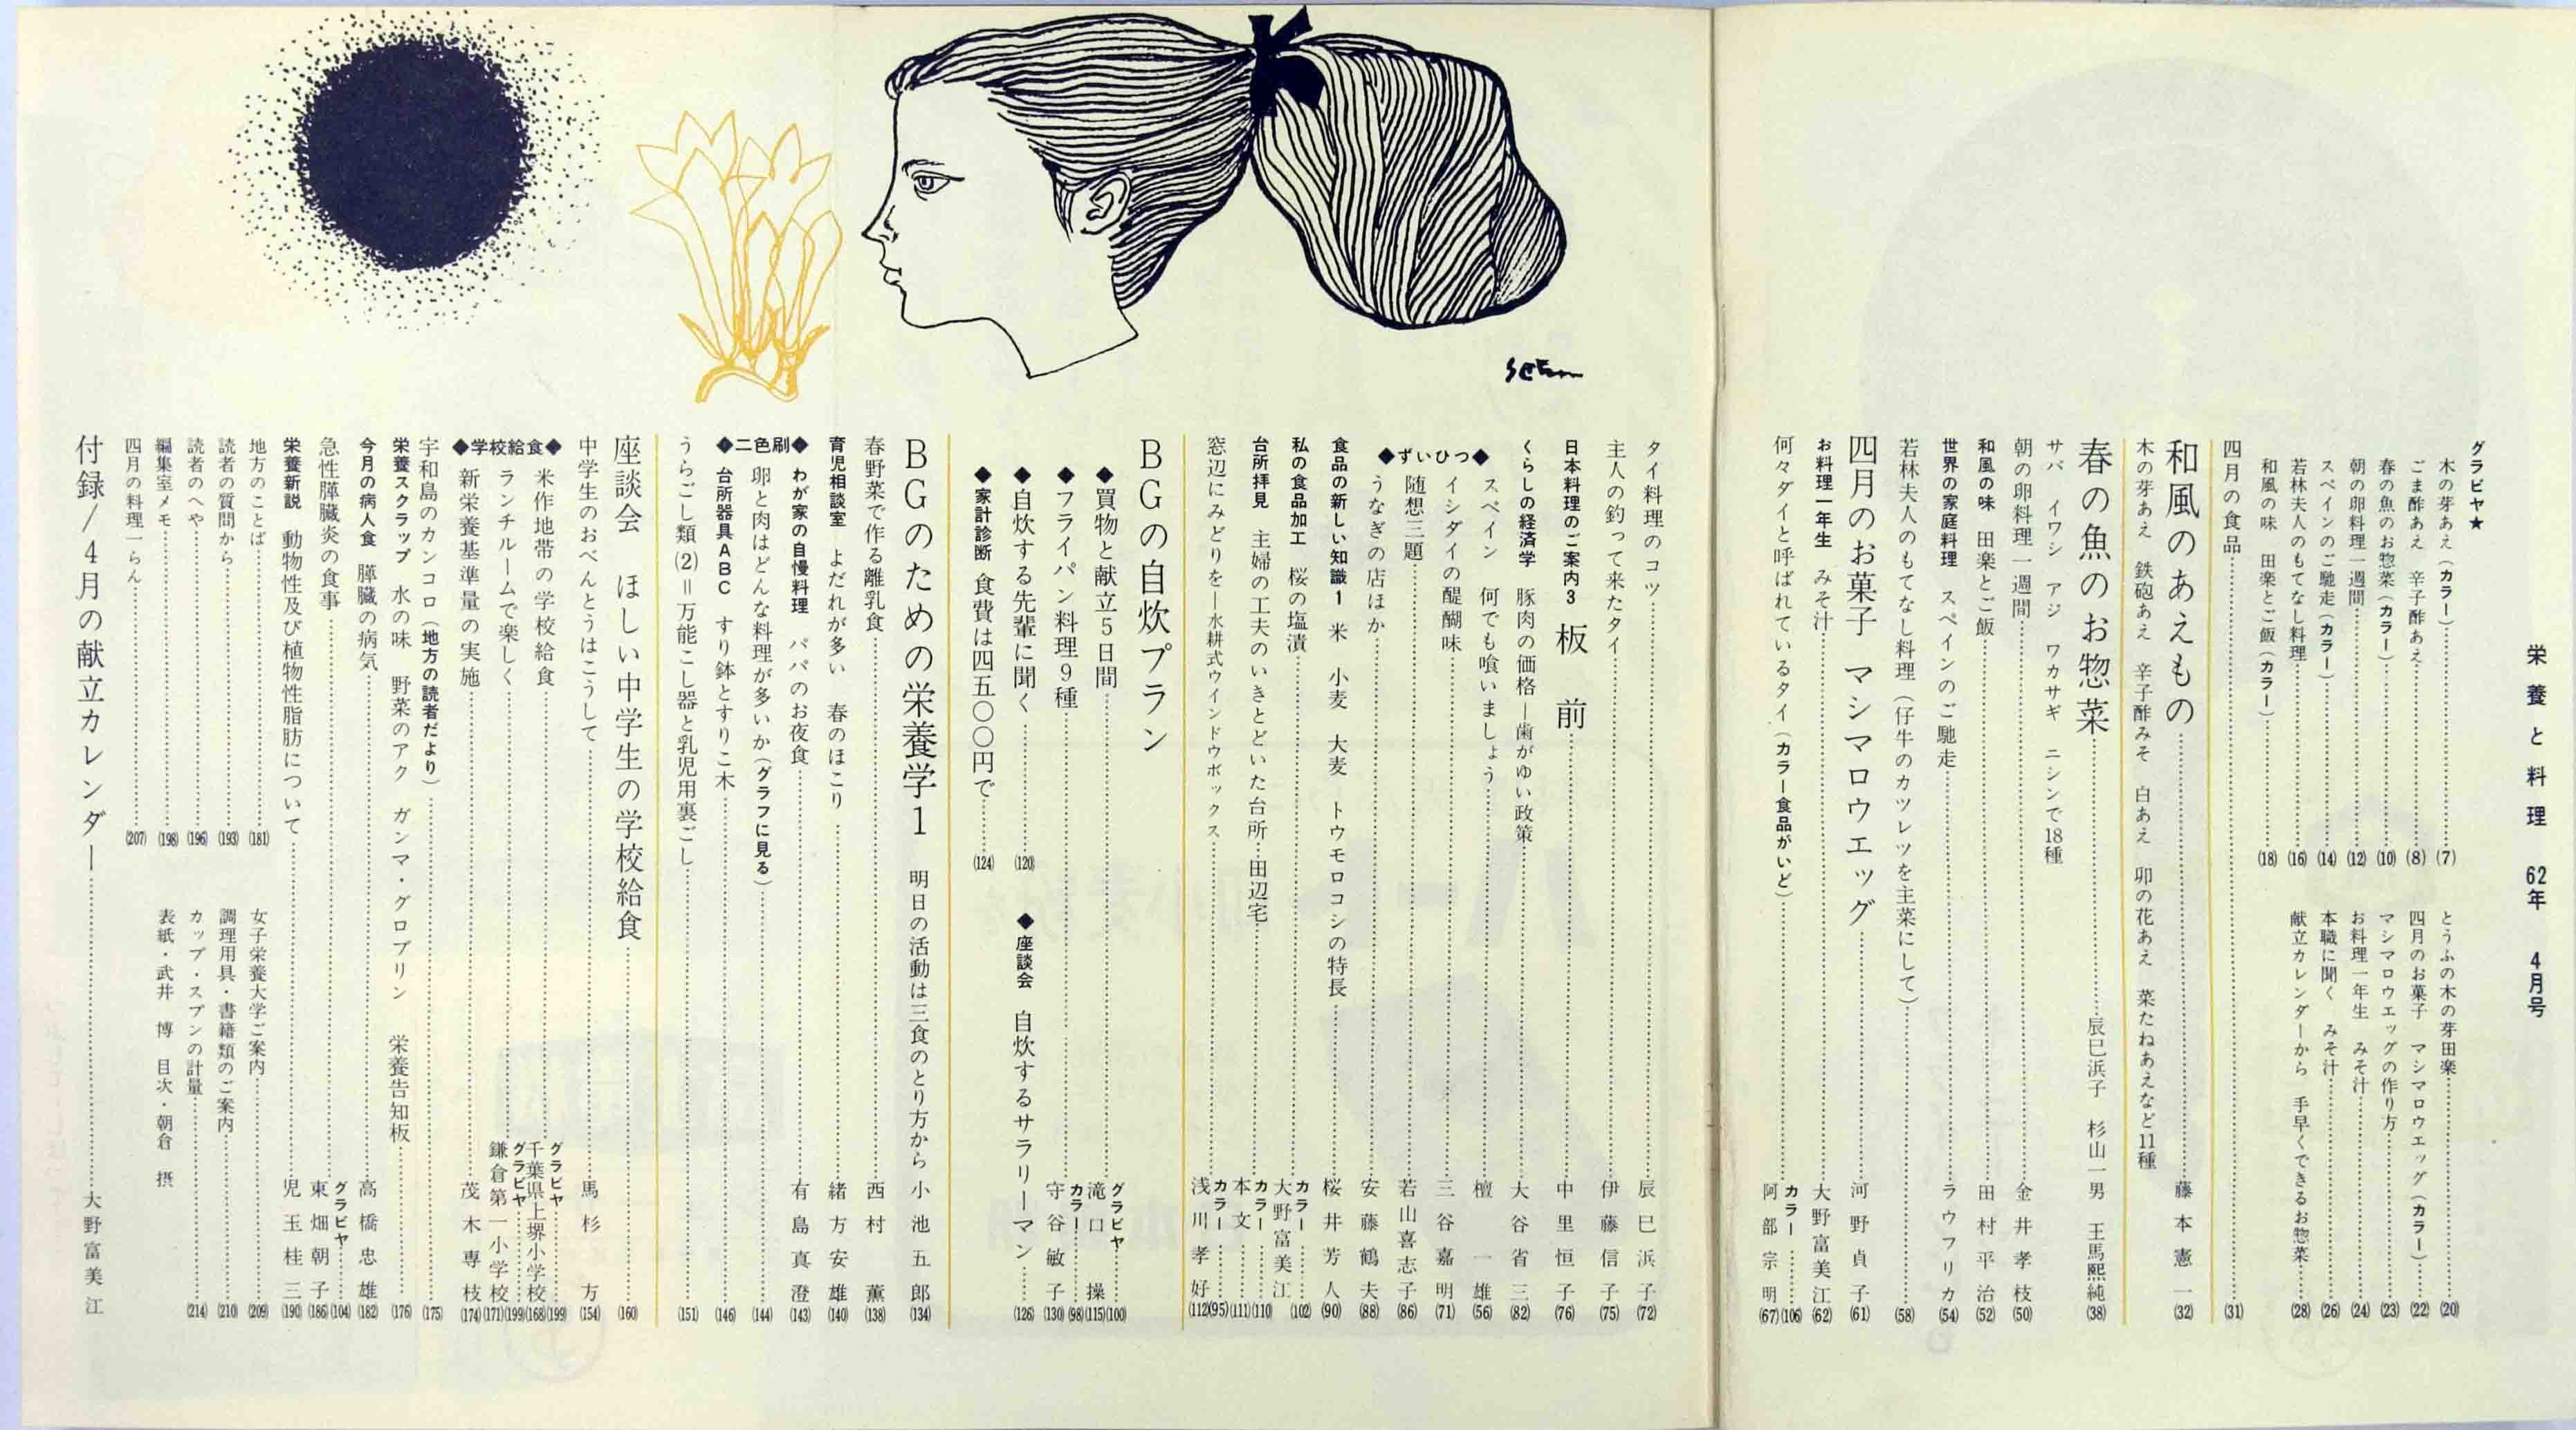 栄養と料理 62年 4月号
グラビヤ★
木の芽あえ(カラー)……(7)
ごま酢あえ 辛子酢あえ……(8)
春の魚のお惣菜(カラー)……(10)
朝の卵料理一週間……(12)
スペインのご馳走(カラー)……(14)
若林夫人のもてなし料理……(16)
和風の味 田楽とご飯(カラー)……(18)
とうふの木の芽田楽……(20)
四月のお菓子 マシマロウエッグ(カラー)……(22)
マシマロウエッグの作り方……(23)
お料理一年生 みそ汁……(24)
本職に聞く みそ汁……(26)
献立カレンダーから 手早くできるお惣菜……(28)
四月の食品……(31)
和風のあえもの……藤本憲一(32)
木の芽あえ 鉄砲あえ 辛子酢みそ 白あえ 卯の花あえ 菜たねあえなど11種
春の魚のお惣菜……辰巳浜子 杉山一男 王馬熙純(38)
サバ イワシ アジ ワカサギ ニシンで18種
朝の卵料理一週間……金井孝枝(50)
和風の味 田楽とご飯……田村平治(52)
世界の家庭料理 スペインのご馳走……ラウフリカ(54)
若林夫人のもてなし料理(仔牛のカツレツを主菜にして)……(58)
四月のお菓子 マシマロウエッグ……河野貞子(61)
お料理一年生 みそ汁……大野富美江(62)
何々ダイと呼ばれているタイ(カラー食品がいど)……カラー……(106)阿部宗明(67)
タイ料理のコツ……辰巳浜子(72)
主人の釣って来たタイ……伊藤信子(75)
日本料理のご案内3 板前……中里恒子(76)
くらしの経済学 豚肉の価格―歯がゆい政策……大谷省三(82)
◆ずいひつ◆
スペイン 何でも喰いましょう……檀一雄(56)
イシダイの醍醐味……三谷嘉明(71)
随想三題……若山喜志子(86)
うなぎの店ほか……安藤鶴夫(88)
食品の新しい知識1 米 小麦 大麦 トウモロコシの特長……桜井芳人(90)
私の食品加工 桜の塩漬……カラー……大野富美江(102)
台所拝見 主婦の工夫のいきとどいた台所・田辺宅……カラー……(110)本文……(111)
窓辺にみどりを―水耕式ウインドウボックス……カラー……(95)浅川孝好(112)
BGの自炊プラン
◆買物と献立5日間……グラビヤ……(100)滝口操(115)
◆フライパン料理9種……カラー……(98)守谷敏子(130)
◆自炊する先輩に聞く……(120)
◆座談会 自炊するサラリーマン……(126)
◆家計診断 食費は四五〇〇円で……(124)
BGのための栄養学1 明日の活動は三食のとり方から 小池五郎(134)
春野菜で作る離乳食……西村薫(138)
育児相談室 よだれが多い 春のほこり……緒方安雄(140)
◆二色刷◆
わが家の自慢料理 パパのお夜食……有島真澄(143)
卵と肉はどんな料理が多いか(グラフに見る)……(144)
台所器具ABC すり鉢とすりこ木……(146)
うらごし類(2)=万能こし器と乳児用裏ごし……(151)
座談会 ほしい中学生の学校給食……(160)
中学生のおべんとうはこうして……馬杉方(154)
◆学校給食◆
米作地帯の学校給食……グラビヤ……(199)千葉県上堺小学校(168)
ランチルームで楽しく……グラビヤ……(199)鎌倉第一小学校(171)
新栄養基準量の実施……茂木専枝(174)
宇和島のカンコロ(地方の読者だより)……(175)
栄養スクラップ 水の味 野菜のアク ガンマ・グロブリン 栄養告知板……(176)
今月の病人食 膵臓の病気……高橋忠雄(182)
急性膵臓炎の食事……グラビヤ……(104)東畑朝子(186)
栄養新説 動物性及び植物性脂肪について……児玉桂三(190)
地方のことば……(181)
読者の質問から……(193)
読者のへや……(196)
編集室メモ……(198)
四月の料理一らん……(207)
女子栄養大学ご案内……(209)
調理用具・書籍類のご案内……(210)
カップ・スプンの計量……(214)
表紙・武井 博 目次・朝倉 摂
付録/4月の献立カレンダー……大野富美江